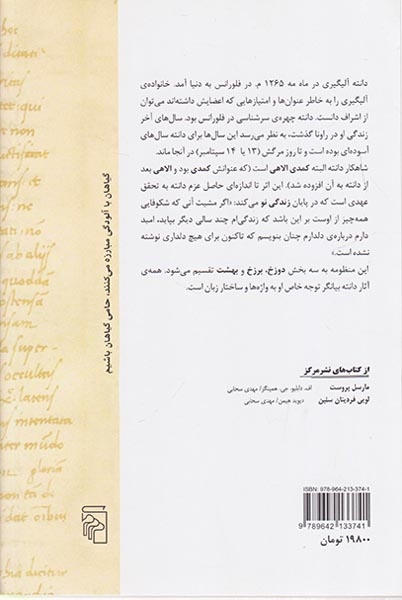 دانته آلیگیری در ماه مه ۱۲۶۵ م. در فلورانس به دنیا آمد. خانواده‌ی
آلیگیری را به خاطر عنوان‌ها و امتیازهایی که اعضایش داشته‌اند می‌توان
از اشراف دانست. دانته چهره‌ی سرشناسی در فلورانس بود. سال‌های آخر
زندگی او در راونا گذشت، به نظر می‌رسد این سال‌ها برای دانته سال‌های
آسوده‌ای بوده است و تا روز مرگش (۱۳ یا ۱۴ سپتامبر) در آنجا ماند.
شاهکار دانته البته کمدی الاهی است (که عنوانش کمدی بود و الاهی بعد
از دانته به آن افزوده شد). این اثر تا اندازه‌ای حاصل عزم دانته به تحقق
عهدی است که در پایان زندگی نو می‌کند: «اگر مشیت آنی که شکوفایی
همه‌چیز از اوست بر این باشد که زندگی‌ام چند سالی دیگر بپاید، امید
دارم درباره‌ی دلدارم چنان بنویسم که تاکنون برای هیچ دلداری نوشته
نشده است.»
این منظومه به سه بخش دوزخ، برزخ و بهشت تقسیم می‌شود. همه‌ی
آثار دانته بیانگر توجه خاص او به واژه‌ها و ساختار زبان است.
گیاهان با آلودگی مبارزه می‌کنند، حامی گیاهان باشیم
از کتاب‌های نشرمرکز
مارسل پروست اف. دابلیو. جی. همینگز/ مهدی سحابی
لویی فردینان سلین دیوید هیمن/ مهدی سحابی
ISBN: 978-964-213-374-1
9 789642 133741
۱۹۸۰۰ تومان